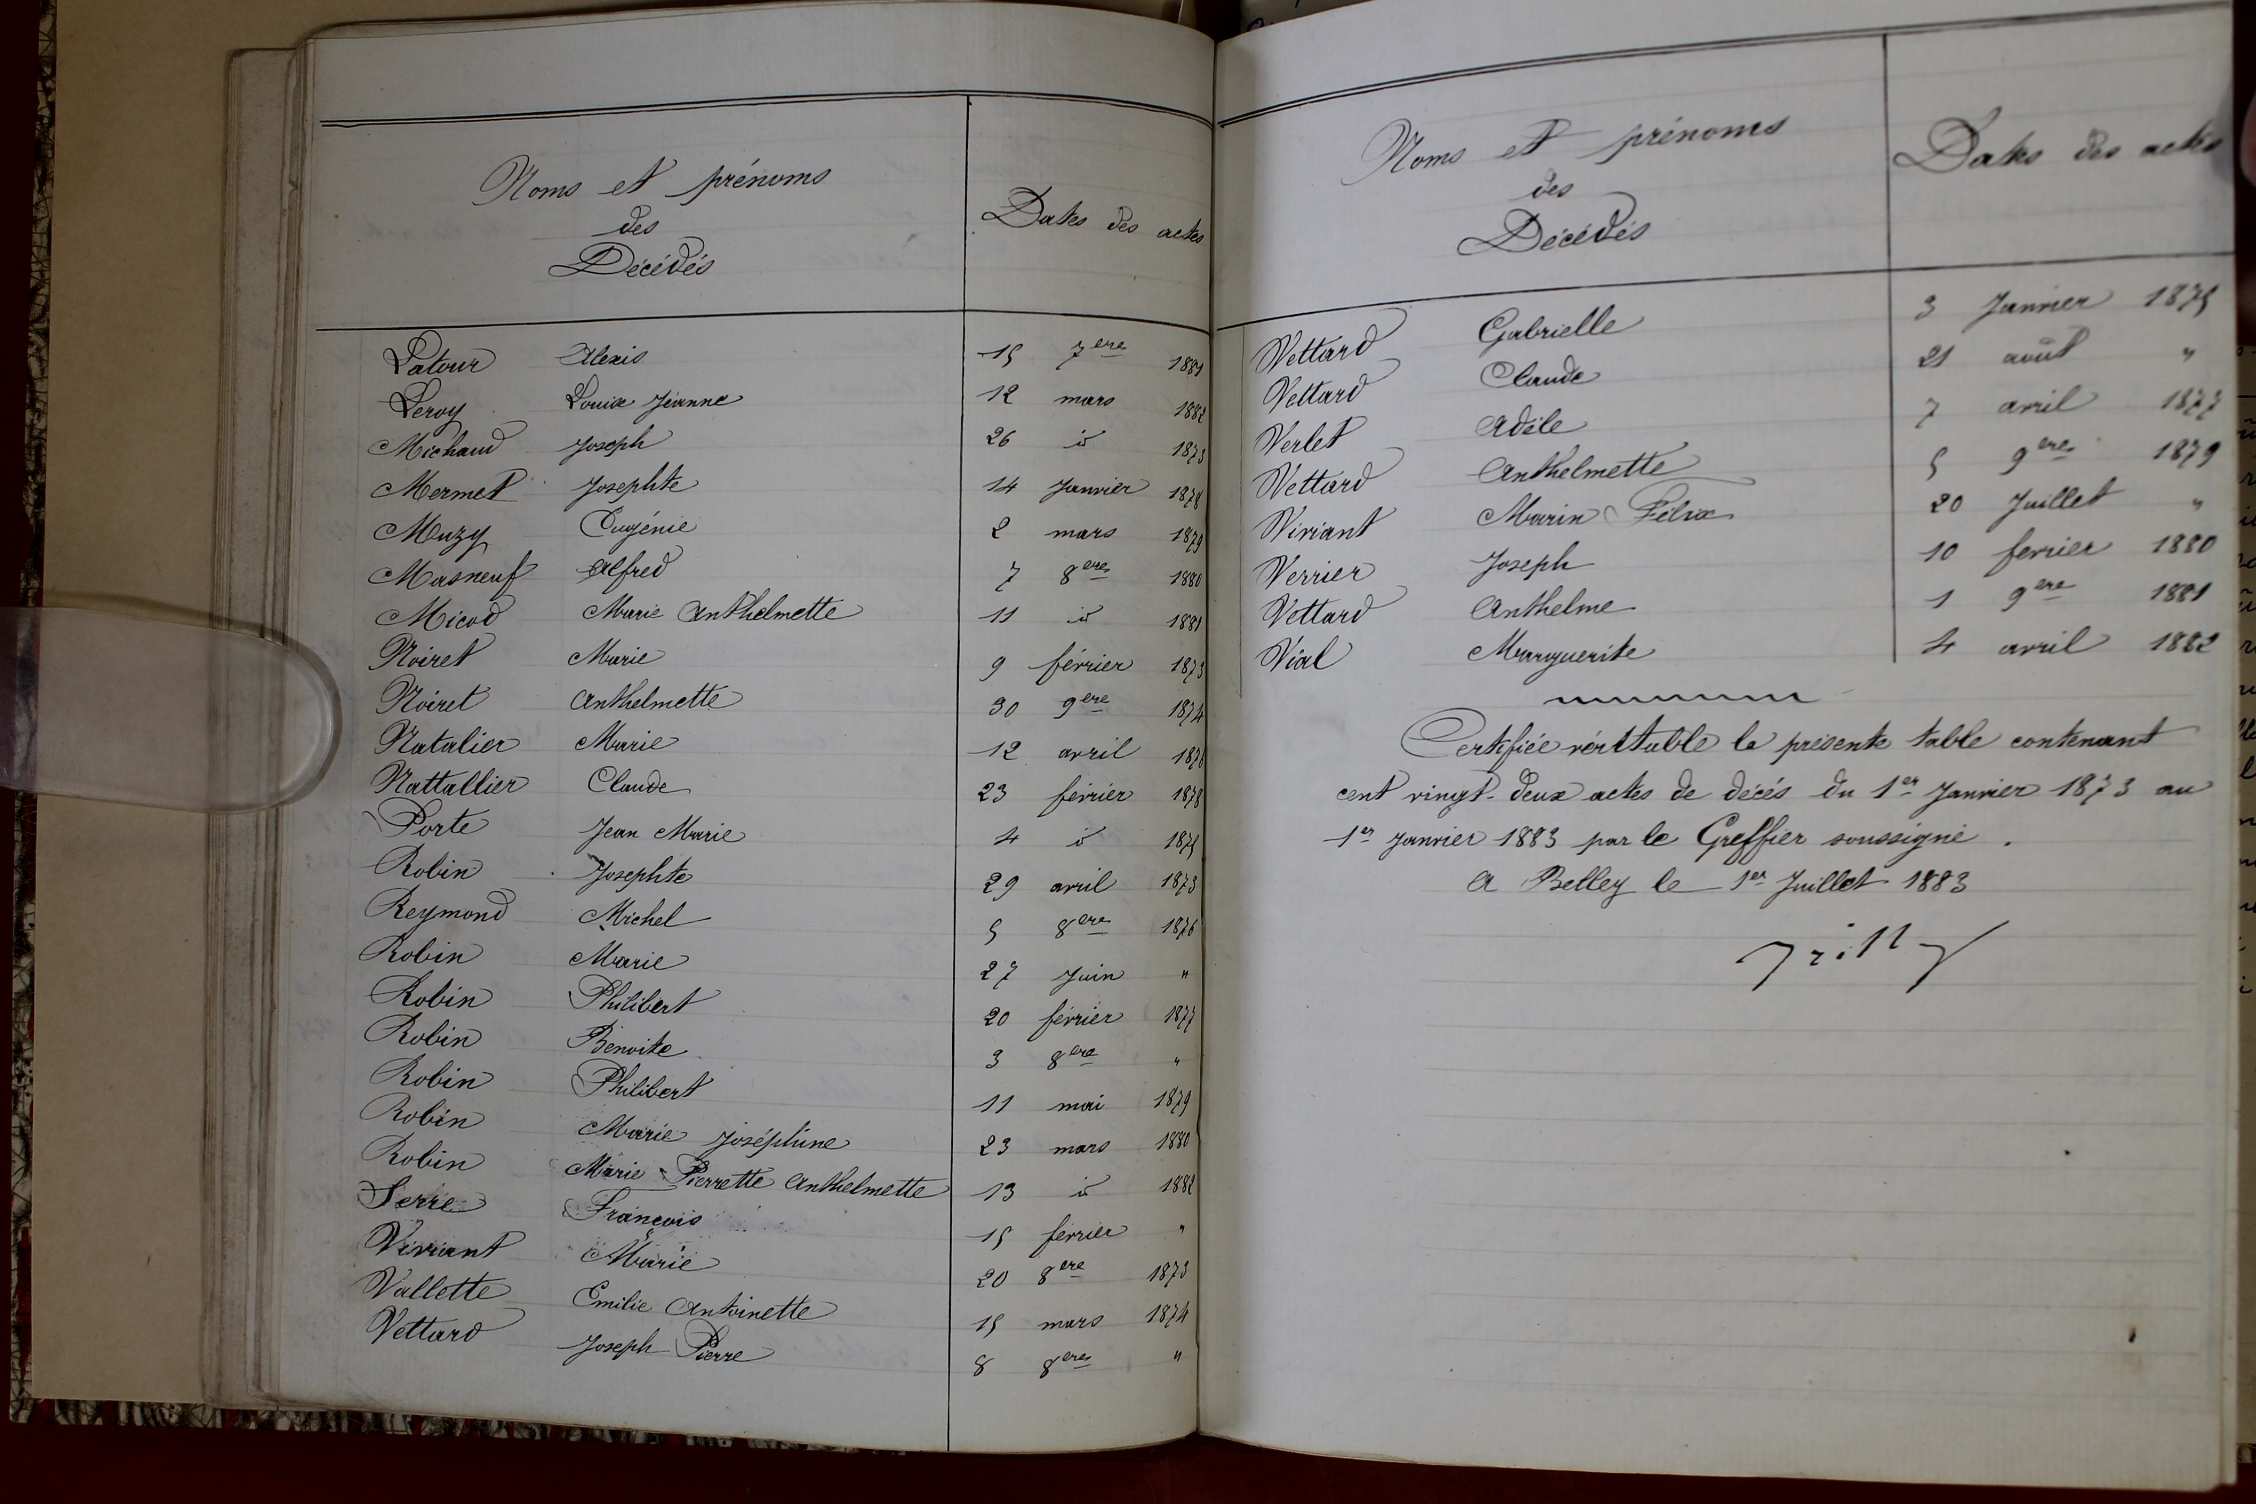 Noms et prénoms
des
Décédés
Dates des actes
Latour Alexis 15 7ere 1881
Leroy Louise Jeanne 12 mars 1882
Michaud Joseph 26 id 1873
Mermet Josephte 14 Janvier 1878
Muzy Eugénie 2 mars 1879
Masneuf Alfred 7 8ere 1880
Micod Marie Anthelmette 11 id 1881
Noiret Marie 9 février 1873
Noiret Anthelmette 30 9ere 1874
Natalier Marie 12 avril 1878
Nattallier Claude 23 février 1878
Porte Jean Marie 4 id 1875
Robin Josephte 29 avril 1873
Reymond Michel 5 8ere 1876
Robin Marie 27 Juin "
Robin Philibert 20 février 1877
Robin Benoite 3 8ere "
Robin Philibert 11 mai 1879
Robin Marie Joséphine 23 mars 1880
Robin Marie Pierrette Anthelmette 13 id 1882
Serre François 15 février "
Viviant Marie 20 8ere 1873
Vallette Emilie Antoinette 15 mars 1874
Vettard Joseph Pierre 8 8ere "
Noms et prénoms
des
Décédés
Dates des actes
Vettard Gabrielle 3 Janvier 1875
Vettard Claude 21 août "
Verlet Adèle 7 avril 1877
Vettard Anthelmette 5 9ere 1879
Viviant Marin Félix 20 Juillet "
Verrier Joseph 10 fevrier 1880
Vettard Anthelme 1 9ere 1881
Vial Marguerite 4 avril 1882
Certifiée véritable la présente table contenant
cent vingt-deux actes de décés du 1er Janvier 1873 au
1er Janvier 1883 par le Greffier soussigné.
A Belley le 1er Juillet 1883